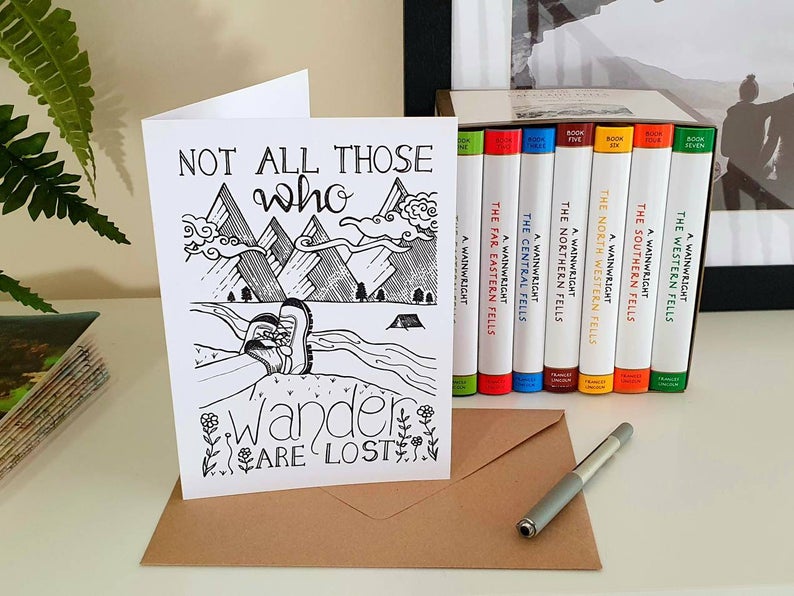 NOT ALL THOSE
who
wander
ARE LOST
BOOK TWO
A. WAINWRIGHT
THE FAR EASTERN FELLS
FRANCES LINCOLN
BOOK THREE
A. WAINWRIGHT
THE CENTRAL FELLS
FRANCES LINCOLN
BOOK FIVE
A. WAINWRIGHT
THE NORTHERN FELLS
FRANCES LINCOLN
BOOK SIX
A. WAINWRIGHT
THE NORTH WESTERN FELLS
FRANCES LINCOLN
BOOK FOUR
A. WAINWRIGHT
THE SOUTHERN FELLS
FRANCES LINCOLN
BOOK SEVEN
A. WAINWRIGHT
THE WESTERN FELLS
FRANCES LINCOLN